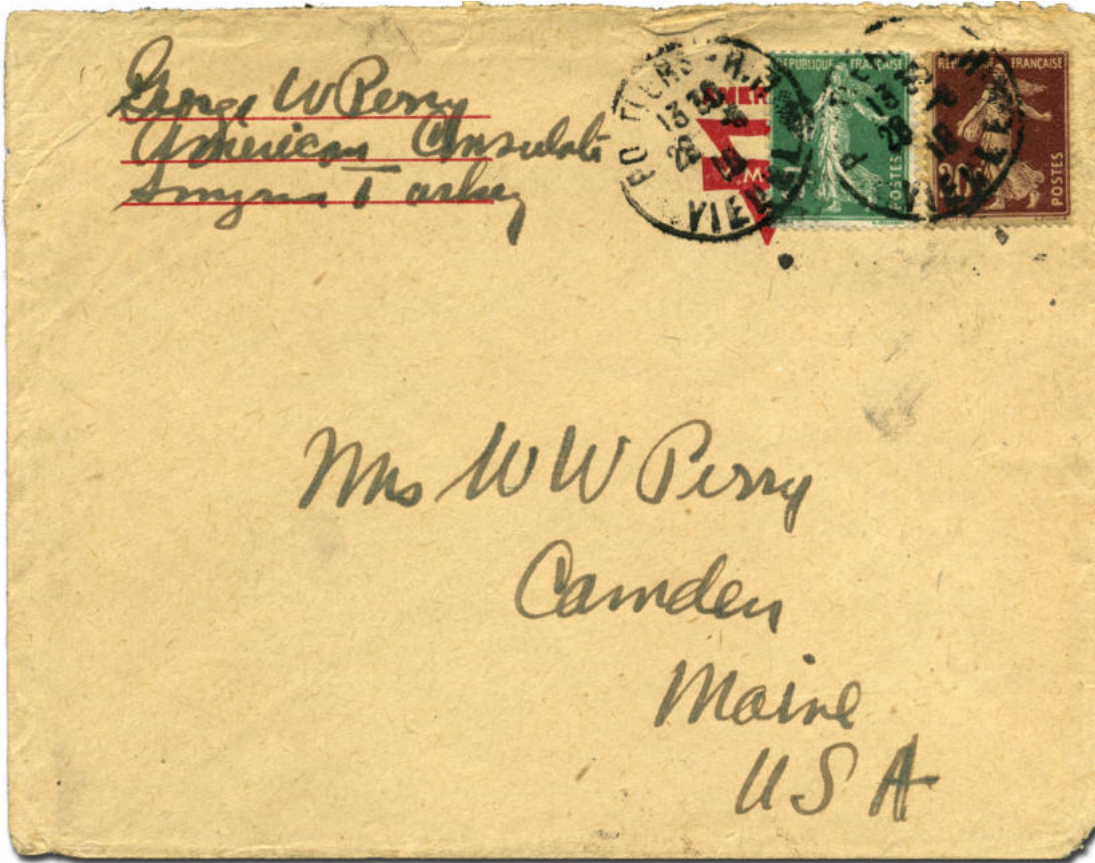 George W Perry
American Consulate
Smyrna Turkey
POITIERS - R.P.
13
28
19
VIENNE
REPUBLIQUE FRANÇAISE
POSTES
REPUBLIQUE FRANÇAISE
20
POSTES
13
28
19
Mrs W W Perry
Camden
Maine
USA